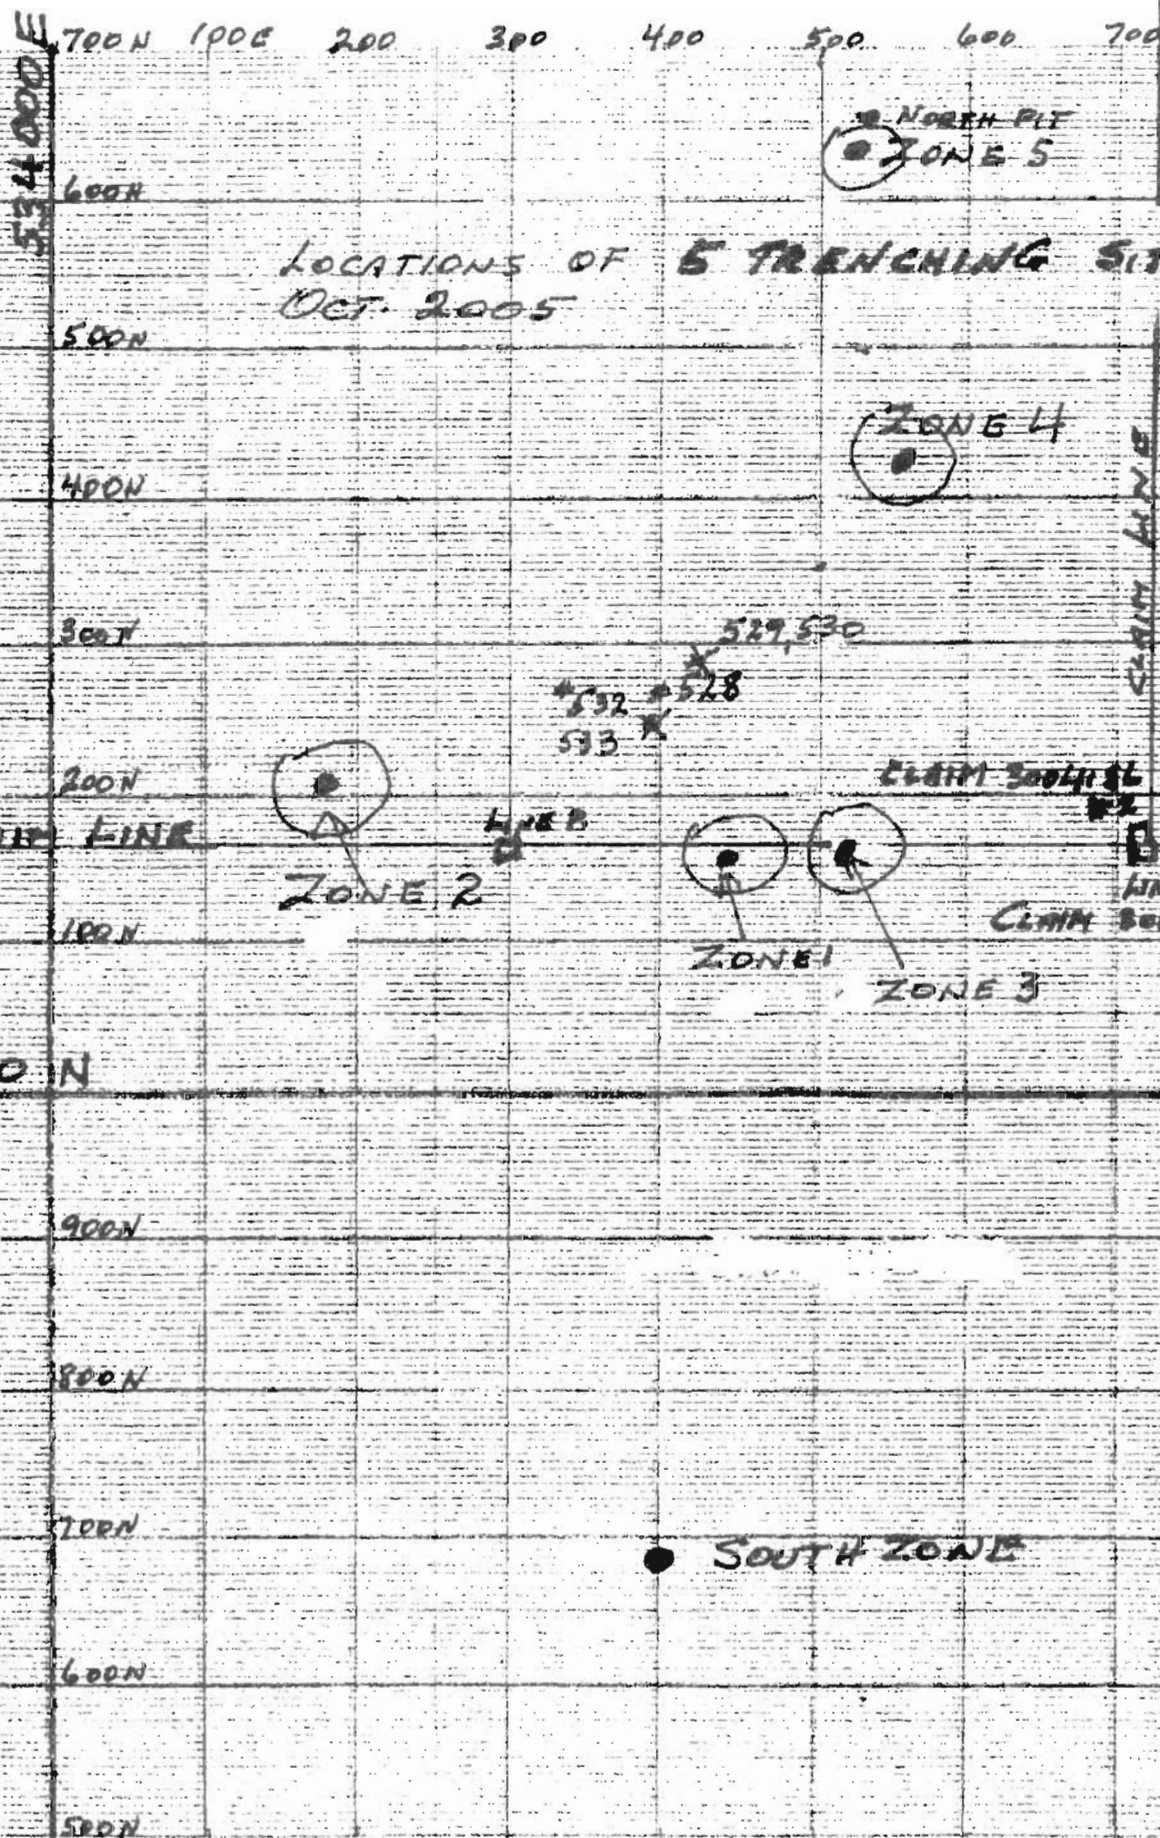 534000E
700N 100E 200 300 400 500 600 700
NORTH PIT
ZONE 5
600N
LOCATIONS OF 5 TRENCHING SIT
OCT. 2005
500N
ZONE 4
400N
CLAIM LINE
300N
529, 530
528
532
533
200N
CLAIM
#2
LINE
LINE B
ZONE 2
CLAIM 300
100N
ZONE 1
ZONE 3
0 N
900N
800N
700N
SOUTH ZONE
600N
500N